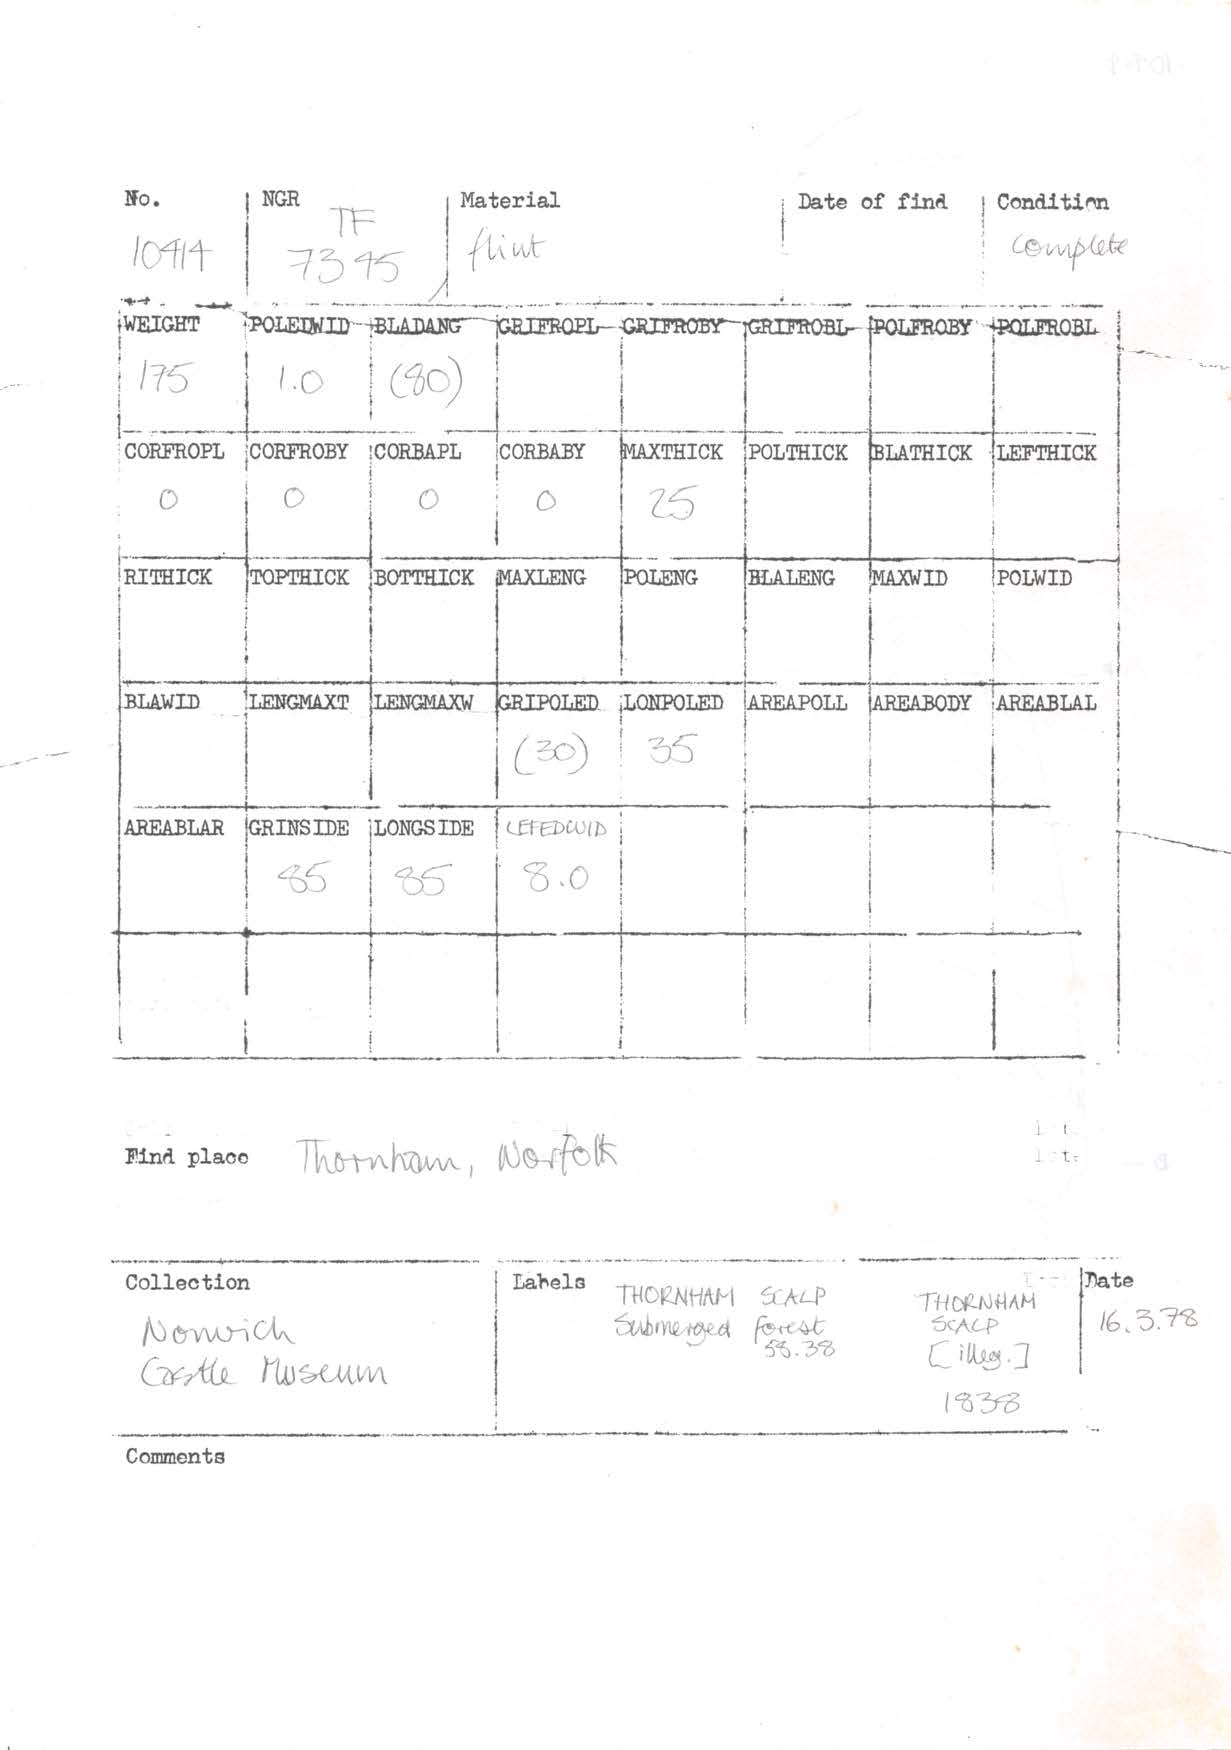 No. NGR Material Date of find Condition
10414 TF 7345 flint complete
WEIGHT POLEDWID BLADANG GRIFROPL GRIFROBY GRIFROBL POLFROBY POLFROBL
175 1.0 (80)
CORFROPL CORFROBY CORBAPL CORBABY MAXTHICK POLTHICK BLATHICK LEFTHICK
0 0 0 0 25
RITHICK TOPTHICK BOTTHICK MAXLENG POLENG BLALENG MAXWID POLWID
BLAWID LENGMAXT LENGMAXW GRIPOLED LONPOLED AREAPOLL AREABODY AREABLAL
(30) 35
AREABLAR GRINSIDE LONGSIDE LEFEDWID
85 85 8.0
Find place Thornham, Norfolk
Collection
Norwich
Castle Museum
Labels
THORNHAM SCALP
Submerged forest
58.38
THORNHAM
SCALP
[illeg.]
1838
Date
16.3.78
Comments